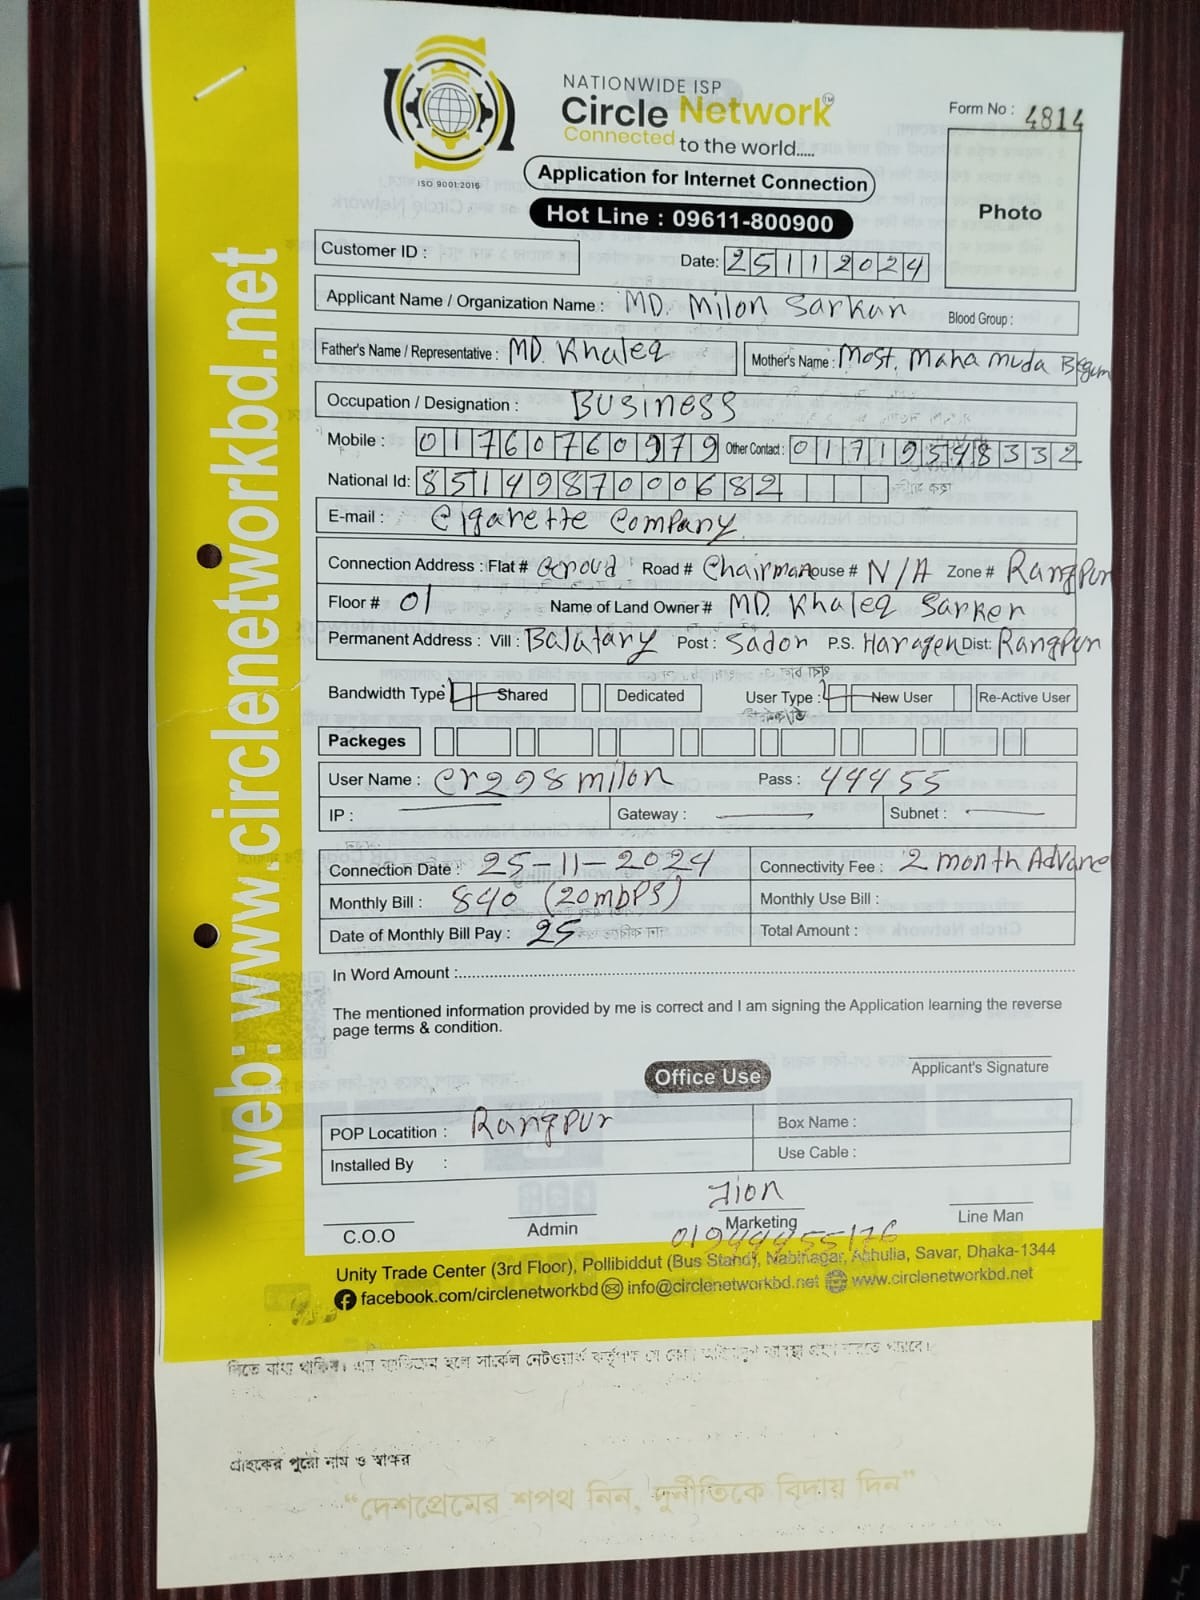 NATIONWIDE ISP
Circle Network™
Connected to the world.....
ISO 9001:2016
Form No : 4814
Application for Internet Connection
Hot Line : 09611-800900
Photo
Customer ID :
Date: 25112024
Applicant Name / Organization Name : MD. Milon Sarkar
Blood Group :
Father's Name / Representative : MD. Khaleq
Mother's Name : Most. Maha muda Begum
Occupation / Designation : Business
Mobile : 01760760979 Other Contact : 01719548332
National Id: 8514987000682
E-mail : Cigarette Company
Connection Address : Flat # Groud Road # Chairman House # N/A Zone # Rangpur
Floor # 01 Name of Land Owner # MD. Khaleq Sarker
Permanent Address : Vill : Balatary Post : Sador P.S. Haragen Dist: Rangpur
Bandwidth Type Shared Dedicated User Type : New User Re-Active User
Packeges
User Name : Cr298milon Pass : 44455
IP : Gateway : Subnet :
Connection Date : 25-11-2024 Connectivity Fee : 2 month Advane
Monthly Bill : 840 (20mbPS) Monthly Use Bill :
Date of Monthly Bill Pay : 25 Total Amount :
In Word Amount :
The mentioned information provided by me is correct and I am signing the Application learning the reverse
page terms & condition.
Applicant's Signature
Office Use
POP Locatition : Rangpur Box Name :
Installed By : Use Cable :
C.O.O Admin Jion Marketing Line Man
Unity Trade Center (3rd Floor), Pollibiddut (Bus Stand), Nabinagar, Ashulia, Savar, Dhaka-1344
facebook.com/circlenetworkbd info@circlenetworkbd.net www.circlenetworkbd.net
web: www.circlenetworkbd.net
গ্রাহকের পুরো নাম ও স্বাক্ষর
“দেশপ্রেমের শপথ নিন, দুর্নীতিকে বিদায় দিন”